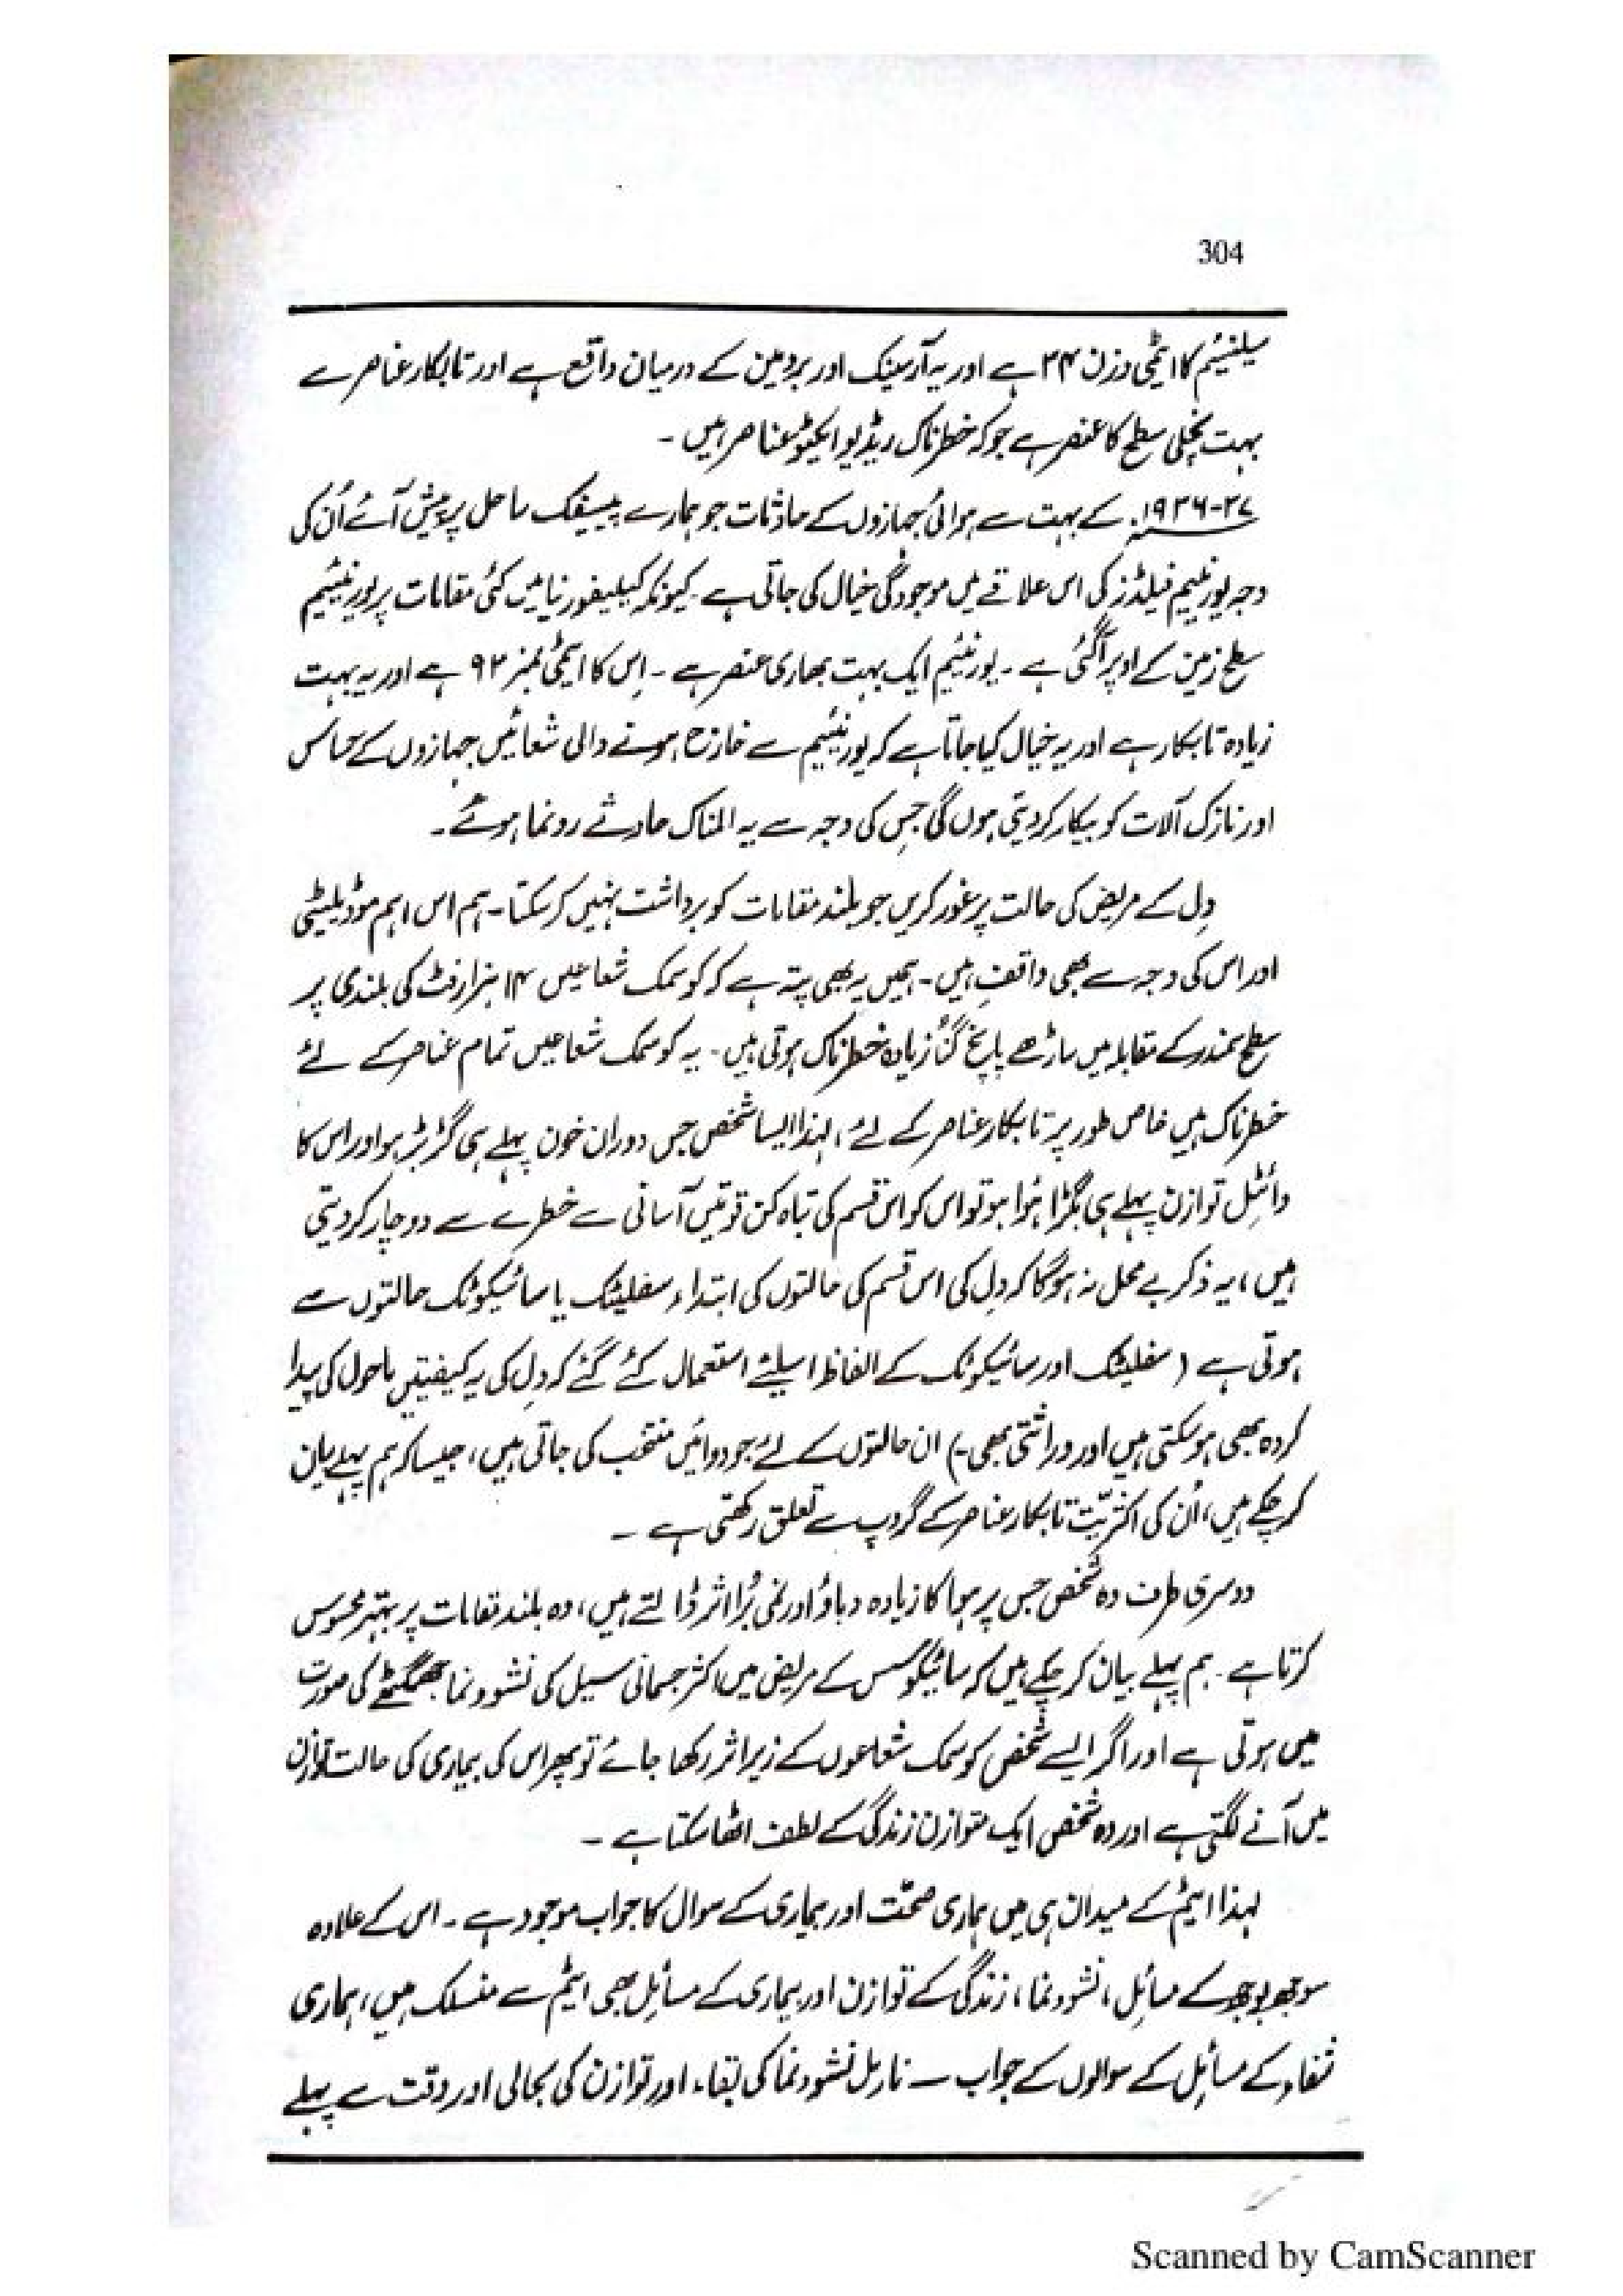 304
سیلنیئم کا ایٹمی وزن ۳۴ ہے اور یہ آرسینک اور برومین کے درمیان واقع ہے اور تابکار عناصر سے
بہت نچلی سطح کا عنصر ہے جو کہ خطرناک ریڈیو ایکٹو عناصر ہیں ۔
۱۹۳۶-۳۷ء کے بہت سے ہوائی جہازوں کے حادثات جو ہمارے پیسیفک ساحل پر پیش آئے اُن کی
وجہ یورینیم فیلڈز کی اس علاقے میں موجودگی خیال کی جاتی ہے ۔ کیونکہ کیلیفورنیا میں کئی مقامات پر یورینیئم
سطح زمین کے اوپر آگئی ہے ۔ یورنیئم ایک بہت بھاری عنصر ہے ۔ اِس کا ایٹمی نمبر ۹۲ ہے اور یہ بہت
زیادہ تابکار ہے اور یہ خیال کیا جاتا ہے کہ یورنیئیم سے خارج ہونے والی شعائیں جہازوں کے حساس
اور نازک آلات کو بیکار کر دیتی ہوں گی جس کی وجہ سے یہ المناک حادثے رونما ہوئے ۔
دِل کے مریض کی حالت پر غور کریں جو بلند مقامات کو برداشت نہیں کر سکتا ۔ ہم اس اہم موڈیلیٹی
اور اس کی وجہ سے بھی واقف ہیں ۔ ہمیں یہ بھی پتہ ہے کہ کوسمک شعاعیں ۱۴ ہزار فٹ کی بلندی پر
سطح سمندر کے مقابلہ میں ساڑھے پانچ گنُ زیادہ خطرناک ہوتی ہیں ۔ یہ کوسمک شعاعیں تمام عناصر کے لئے
خطرناک ہیں خاص طور پر تابکار عناصر کے لئے ، لہذا ایسا شخص جس دوران خون پہلے ہی گڑبڑ ہو اور اس کا
وائٹل توازن پہلے ہی بگڑا ہُوا ہو تو اس کو اس قسم کی تباہ کن قوتیں آسانی سے خطرے سے دوچار کر دیتی
ہیں ، یہ ذکر بے محل نہ ہو گا کہ دِل کی اس قسم کی حالتوں کی ابتداء سفلیٹک یا سائیکوٹک حالتوں سے
ہوتی ہے ( سفلیٹک اور سائیکوٹک کے الفاظ اسیلئے استعمال کئے گئے کہ دِل کی یہ کیفیتیں ماحول کی پیدا
کردہ بھی ہو سکتی ہیں اور وراثتی بھی ۔) ان حالتوں کے لئے جو دوائیں منتخب کی جاتی ہیں ، جیسا کہ ہم پہلے بیان
کر چکے ہیں ، اُن کی اکثریّت تابکار عناصر کے گروپ سے تعلق رکھتی ہے ۔
دوسری طرف وہ شخص جس پر ہوا کا زیادہ دباؤ اور نمی بُرا اثر ڈالتے ہیں ، وہ بلند مقامات پر بہتر محسوس
کرتا ہے ۔ ہم پہلے بیان کر چکے ہیں کہ سائیکوسس کے مریض میں اکثر جسمانی سیل کی نشوونما جھمگھٹے کی صورت
میں ہوتی ہے اور اگر ایسے شخص کو سمک شعاعوں کے زیر اثر رکھا جائے تو پھر اس کی بیماری کی حالت توازن
میں آنے لگتی ہے اور وہ شخص ایک متوازن زندگی کے لطف اٹھا سکتا ہے ۔
لہذا ایٹم کے میدان ہی میں ہماری صحّت اور بیماری کے سوال کا جواب موجود ہے ۔ اس کے علاوہ
سوجھ بوجھ کے مسائل ، نشوونما ، زندگی کے توازن اور بیماری کے مسائل بھی ایٹم سے منسلک ہیں ، ہماری
شفاء کے مسائل کے سوالوں کے جواب سے نارمل نشوونما کی بقاء اور توازن کی بحالی اور وقت سے پہلے
Scanned by CamScanner